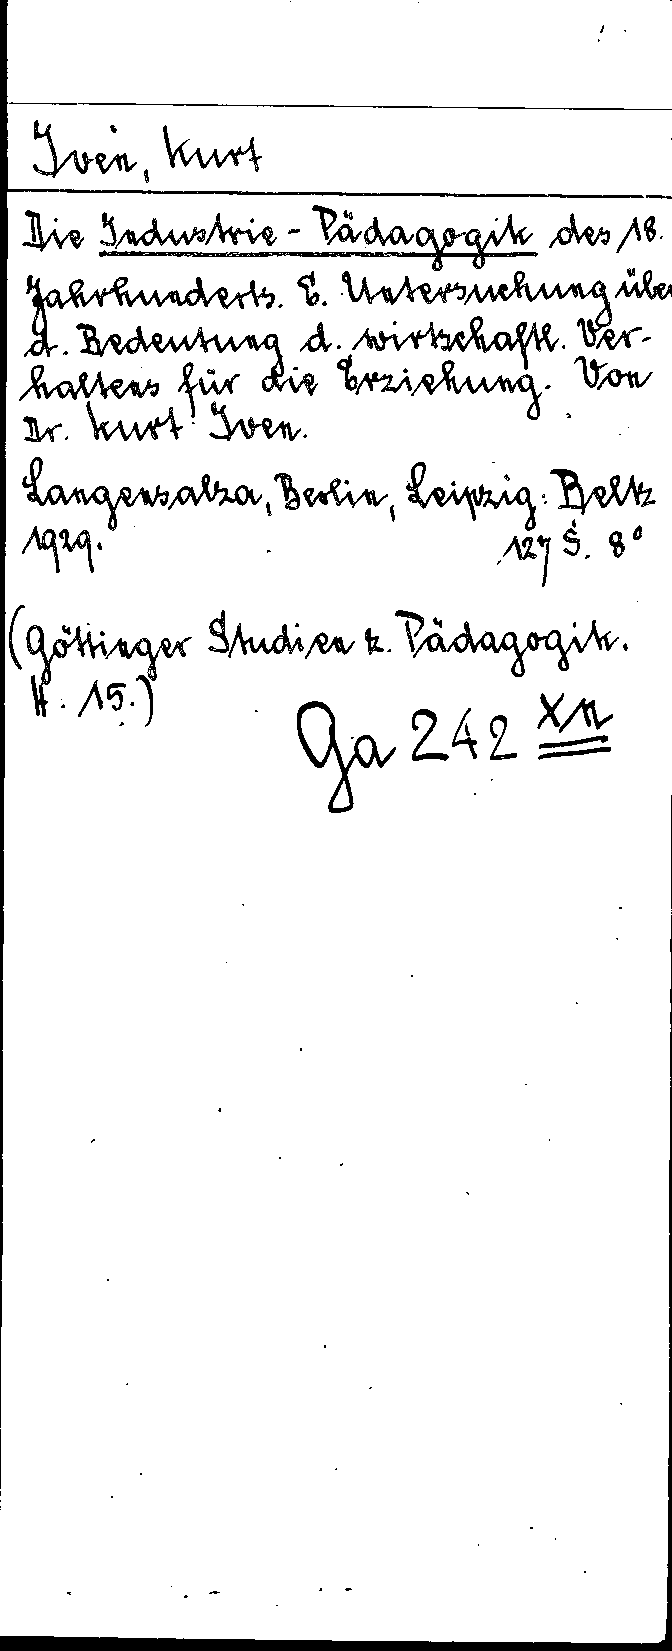 Iven, Kurt
Die Industrie-Pädagogik des 18.
Jahrhunderts. E. Untersuchung über
d. Bedeutung d. wirtschaftl. Ver-
haltens für die Erziehung. Von
Dr. Kurt Iven.
Langensalza, Berlin, Leipzig: Beltz
1929. 127 S. 8°
(Göttinger Studien z. Pädagogik.
H. 15.)
Ga 242 xn